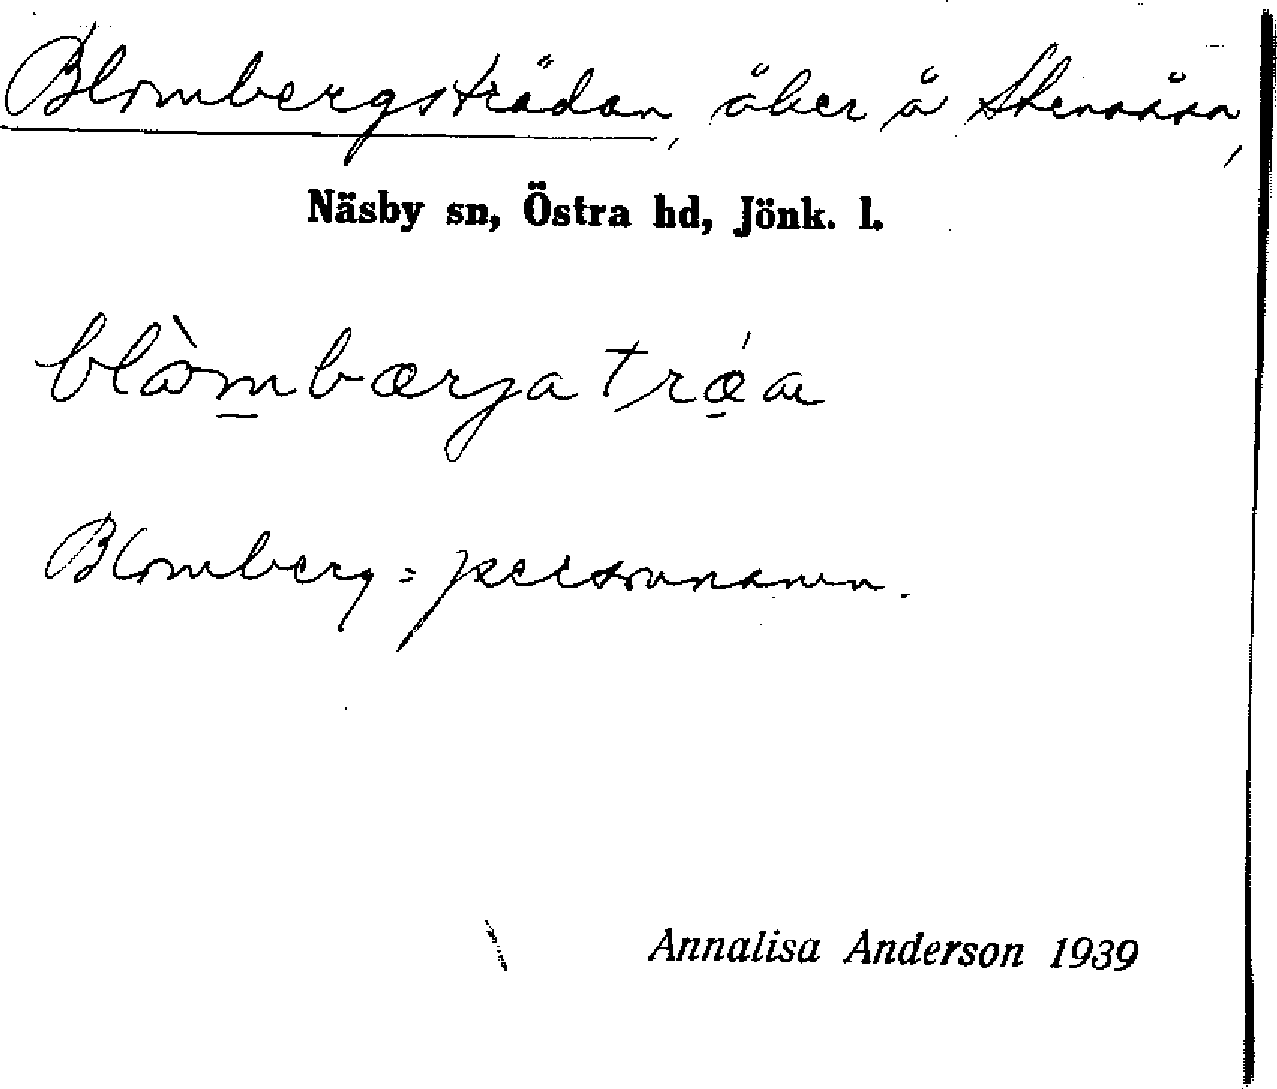 Blombergsträdan, åker å Stenåsen,
Näsby sn, Östra hd, Jönk. l.
Blomberg = personnamn.
Annalisa Anderson 1939